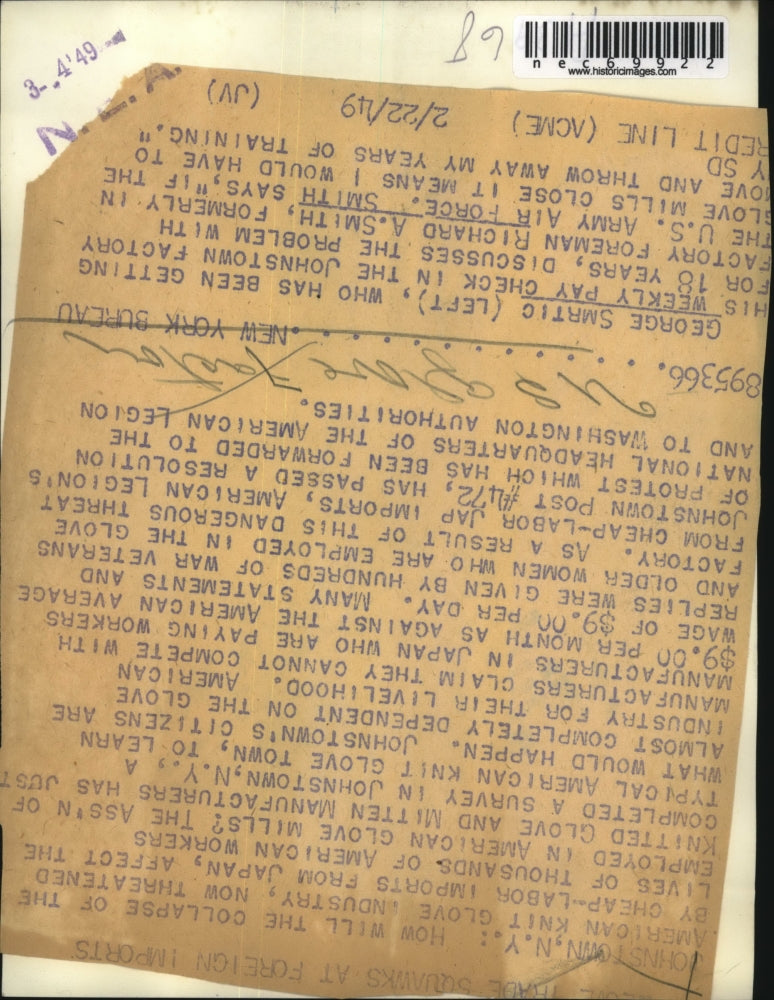 3-.4'49
N.E.A.
68
nec69922
www.historicimages.com
TRADE SQUAWKS AT FOREIGN IMPORTS
JOHNSTOWN, N.Y.: HOW WILL THE COLLAPSE OF THE
AMERICAN KNIT GLOVE INDUSTRY, NOW THREATENED
BY CHEAP-LABOR IMPORTS FROM JAPAN, AFFECT THE
LIVES OF THOUSANDS OF AMERICAN WORKERS
EMPLOYED IN AMERICAN GLOVE MILLS? THE ASS'N OF
KNITTED GLOVE AND MITTEN MANUFACTURERS HAS JUST
COMPLETED A SURVEY IN JOHNSTOWN, N.Y., A
TYPICAL AMERICAN KNIT GLOVE TOWN, TO LEARN
WHAT WOULD HAPPEN. JOHNSTOWN'S CITIZENS ARE
ALMOST COMPLETELY DEPENDENT ON THE GLOVE
INDUSTRY FOR THEIR LIVELIHOOD. AMERICAN
MANUFACTURERS CLAIM THEY CANNOT COMPETE WITH
MANUFACTURERS IN JAPAN WHO ARE PAYING WORKERS
$9.00 PER MONTH AS AGAINST THE AMERICAN AVERAGE
WAGE OF $9.00 PER DAY. MANY STATEMENTS AND
REPLIES WERE GIVEN BY HUNDREDS OF WAR VETERANS
AND OLDER WOMEN WHO ARE EMPLOYED IN THE GLOVE
FACTORY. AS A RESULT OF THIS DANGEROUS THREAT
FROM CHEAP-LABOR JAP IMPORTS, AMERICAN LEGION'S
JOHNSTOWN POST #472, HAS PASSED A RESOLUTION
OF PROTEST WHICH HAS BEEN FORWARDED TO THE
NATIONAL HEADQUARTERS OF THE AMERICAN LEGION
AND TO WASHINGTON AUTHORITIES.
US Glove Factory
895366. . . . . . . . . . . NEW YORK BUREAU
GEORGE SMRTIC (LEFT), WHO HAS BEEN GETTING
HIS WEEKLY PAY CHECK IN THE JOHNSTOWN FACTORY
FOR 18 YEARS, DISCUSSES THE PROBLEM WITH
FACTORY FOREMAN RICHARD A. SMITH, FORMERLY IN
THE U.S. ARMY AIR FORCE. SMITH SAYS, "IF THE
GLOVE MILLS CLOSE IT MEANS I WOULD HAVE TO
MOVE AND THROW AWAY MY YEARS OF TRAINING."
Y SD
REDIT LINE (ACME) 2/22/49 (JV)